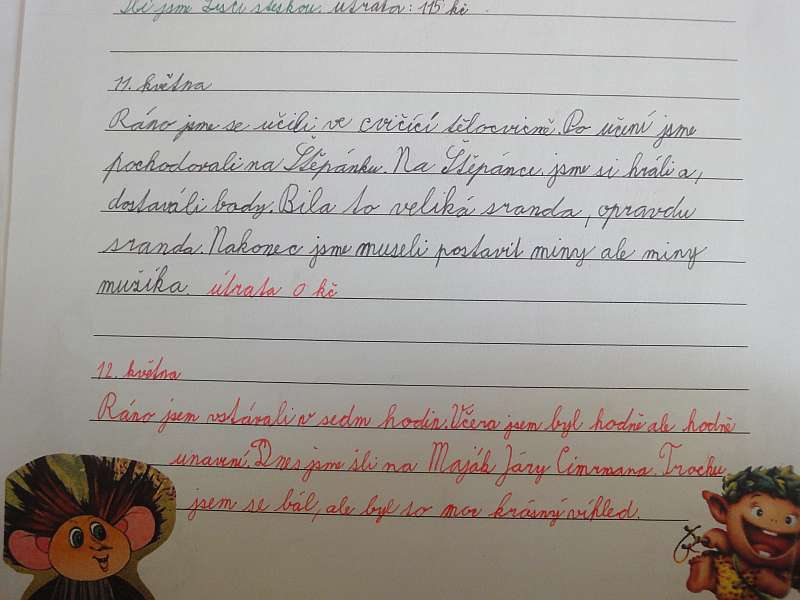 jsme stezkou. útrata: 115 kč.
11. května
Ráno jsme se učili ve cvičící tělocvicně. Po učení jsme
pochodovali na Štěpánku. Na Štěpánce jsme si hráli a,
dostaváli body. Bila to veliká sranda, opravdu
sranda. Nakonec jsme museli postavit miny ale miny
mužíka. útrata 0 kč
12. května
Ráno jsem vstávali v sedm hodin. Včera jsem byl hodně ale hodně
unavení. Dnes jsme šli na Maják Járy Cimrmana. Trochu
jsem se bál, ale byl to moc krásný víhled.